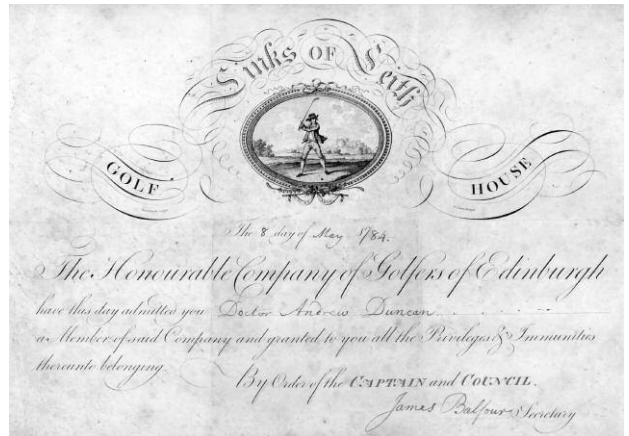 Links OF Leith
GOLF HOUSE
The 8 day of May 1784.
The Honourable Company of Golfers of Edinburgh
have this day admitted you Doctor Andrew Duncan
a Member of said Company and granted to you all the Privileges & Immunities
thereunto belonging.
By Order of the CAPTAIN and COUNCIL.
James Balfour Secretary